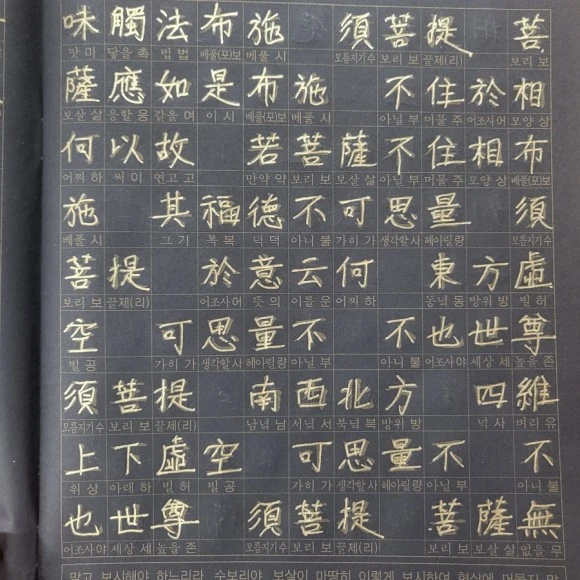 味觸法布施 須菩提 菩
맛 미 닿을 촉 법 법 베풀(포)보 베풀 시 모름지기수 보리 보 끝제(리) 보리 보
薩應如是布施 不住於相
보살 살 응할 응 같을 여 이 시 베풀(포)보 베풀 시 아닐 부 머물 주 어조사어 모양 상
何以故 若菩薩不住相布
어찌 하 써 이 연고 고 만약 약 보리 보 보살 살 아닐 부 머물 주 모양 상 베풀(포)보
施 其福德不可思量 須
베풀 시 그 기 복 복 덕 덕 아니 불 가히 가 생각할사 헤아릴량 모름지기수
菩提 於意云何 東方虛
보리 보 끝제(리) 어조사어 뜻 의 이를 운 어찌 하 동녘 동 방위 방 빌 허
空 可思量不 不也世尊
빌 공 가히 가 생각할사 헤아릴량 아닐 부 아니 불 어조사야 세상 세 높을 존
須菩提 南西北方 四維
모름지기수 보리 보 끝제(리) 남녘 남 서녘 서 북녘 북 방위 방 넉 사 버리 유
上下虛空 可思量不 不
위 상 아래 하 빌 허 빌 공 가히 가 생각할사 헤아릴량 아닐 부 아니 불
也世尊 須菩提 菩薩無
어조사야 세상 세 높을 존 모름지기수 보리 보 끝제(리) 보리 보 보살 살 없을 무
말고 보시해야 하느니라. 수보리야, 보살이 마땅히 이렇게 보시하여 형상에